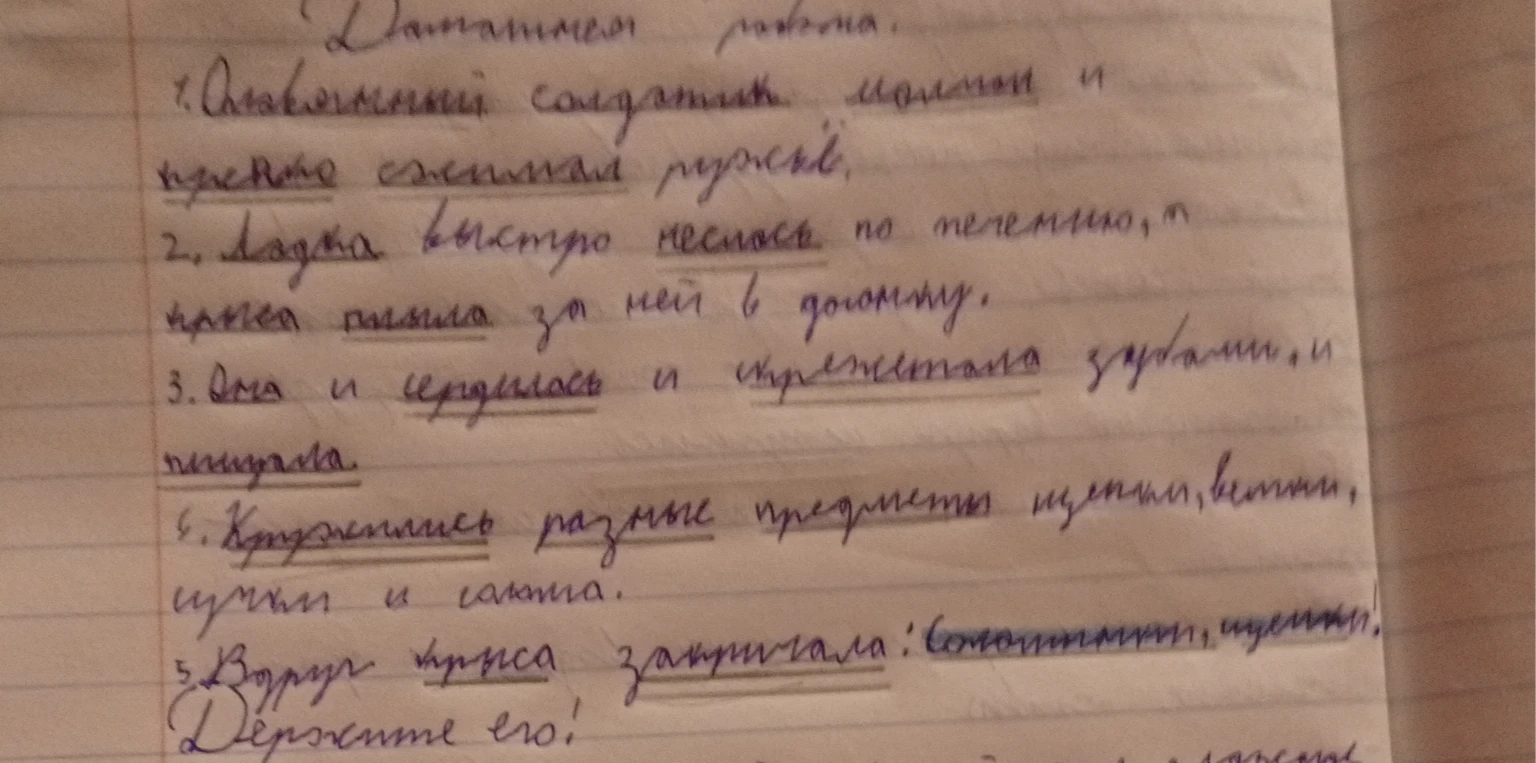 Домашняя работа.
1. Оловянный солдатик молчал и
крепко сжимал ружьё.
2. Лодка быстро неслась по течению, а
крыса плыла за ней в догонку.
3. Она и сердилась и скрежетала зубами, и
пищала.
4. Кружились разные предметы щепки, ветки,
сучки и солома.
5. Вдруг крыса закричала: Соломинки, щепки!
Держите его!